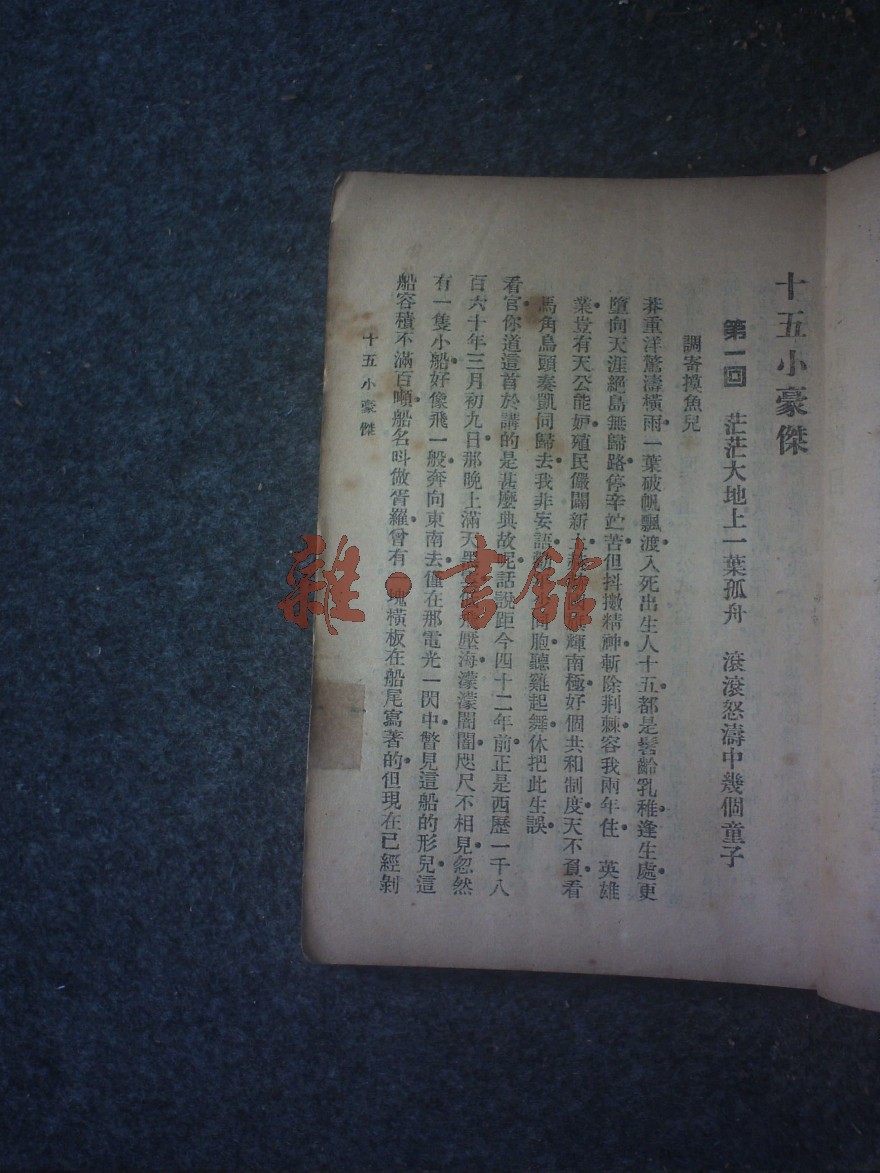 十五小豪傑
第一回　茫茫大地上一葉孤舟　滾滾怒濤中幾個童子
調寄摸魚兒
莽重洋驚濤橫雨一葉破帆飄渡入死出生人十五都是髫齡乳稚逢生處更
墮向天涯絕島無歸路停辛竚苦但抖擻精神斬除荆棘容我兩年住　英雄
業豈有天公能妒殖民儼闢新土輝南極好個共和制度天不負看
馬角烏頭奏凱同歸去我非妄語同胞聽雞起舞休把此生誤
看官你道這首於講的是甚麼典故呢話說距今四十二年前正是西歷一千八
百六十年三月初九日那晚上滿天黑壓海濛濛闇闇咫尺不相見忽然
有一隻小船好像飛一般奔向東南去僅在那電光一閃中瞥見這船的形兒這
船容積不滿百噸船名叫做胥羅曾有一塊橫板在船尾寫著的但現在已經剝
十五小豪傑
雜·書館